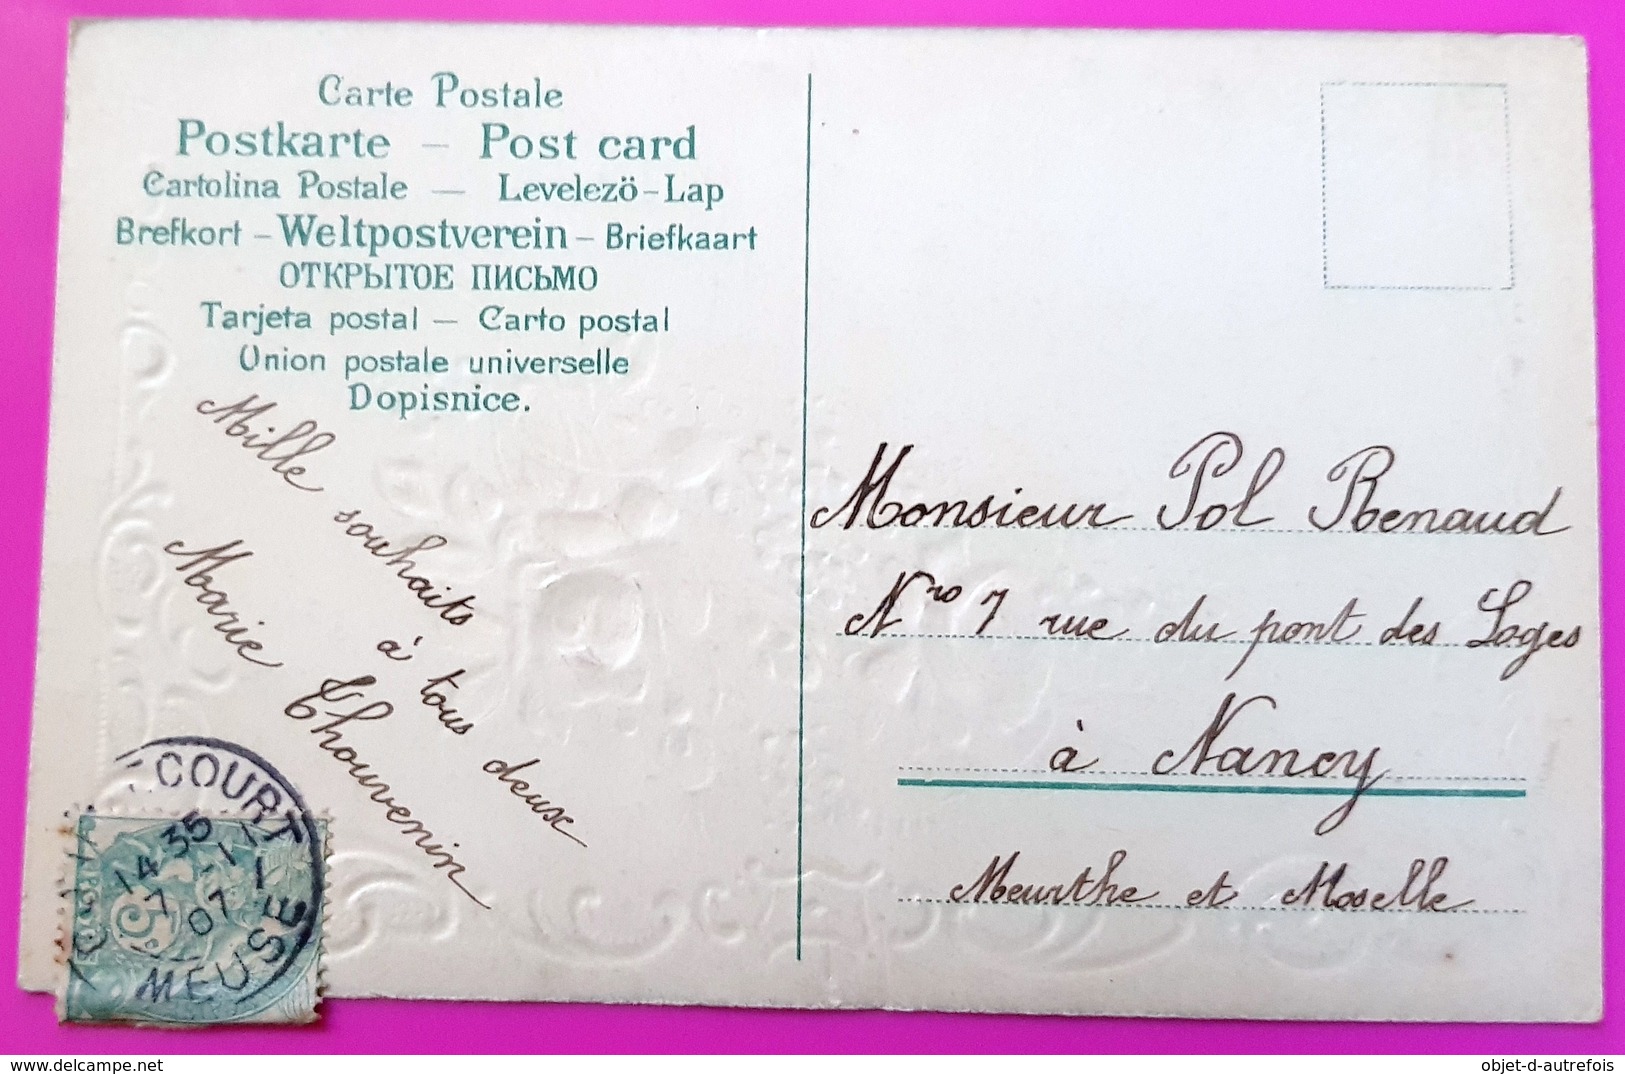 Carte Postale
Postkarte – Post card
Cartolina Postale — Levelező-Lap
Brefkort – Weltpostverein – Briefkaart
ОТКРЫТОЕ ПИСЬМО
Tarjeta postal — Carto postal
Union postale universelle
Dopisnice.
Mille souhaits à tous deux
Marie Thouvenin
Monsieur Pol Renaud
Nro 7 rue du pont des Loges
à Nancy
Meurthe et Moselle
COURT
14 35
7 -1
07
MEUSE
5
objet-d-autrefois